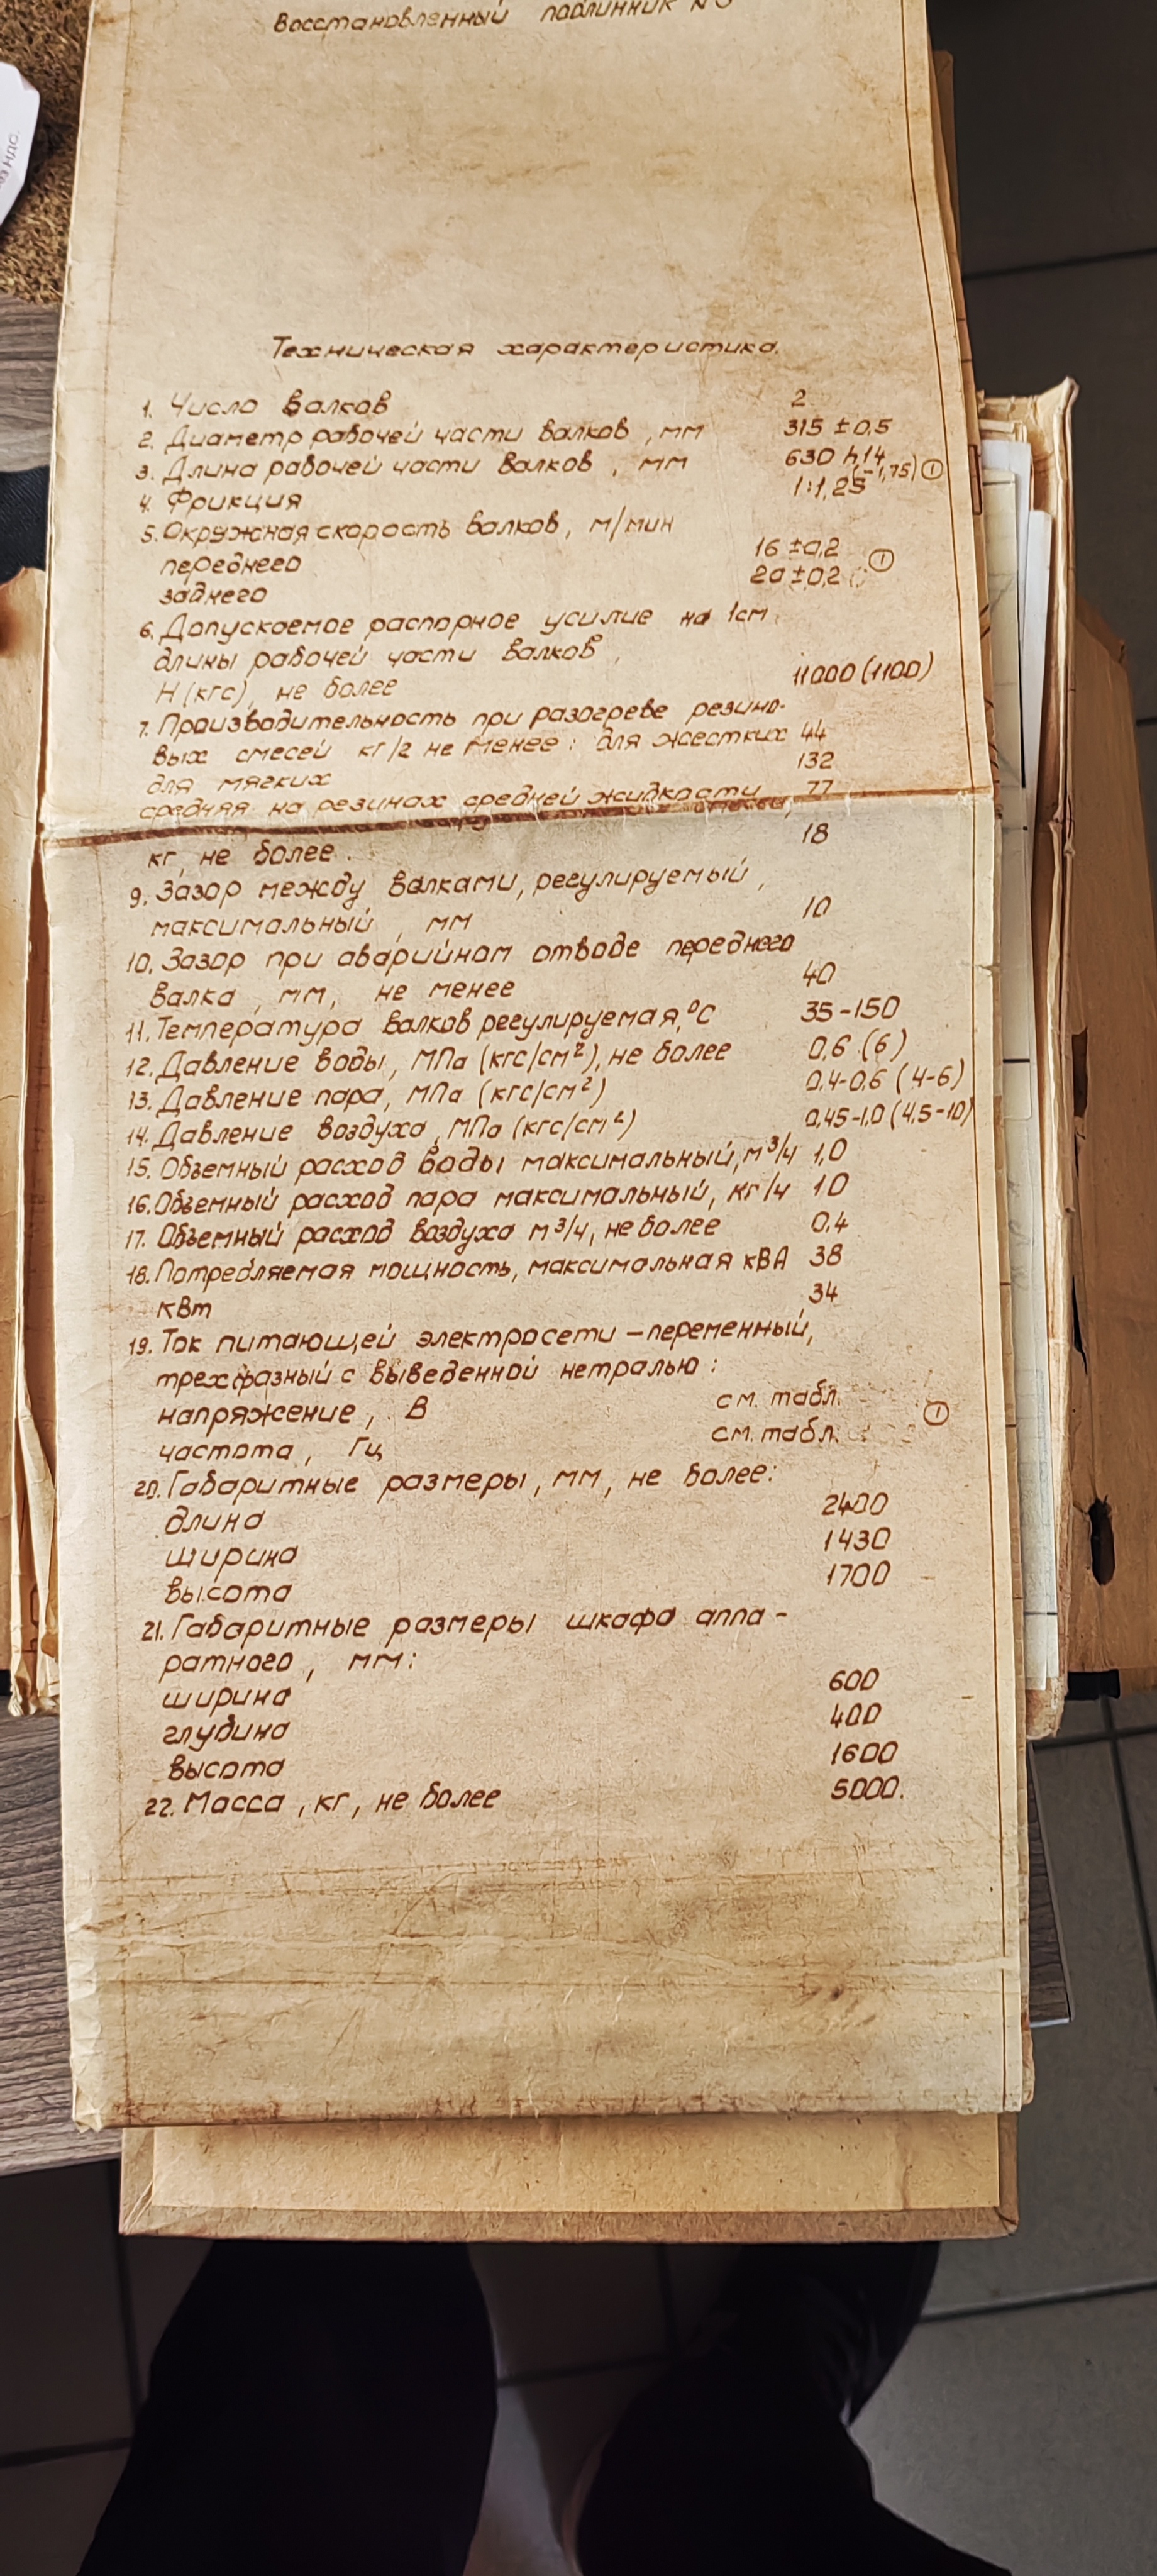 Восстановленный подлинник №3
Техническая характеристика.
1. Число валков 2
2. Диаметр рабочей части валков, мм 315 ±0,5
3. Длина рабочей части валков, мм 630 h14
(-1,75) 1
4. Фрикция 1:1,25
5. Окружная скорость валков, м/мин
переднего 16 ±0,2
заднего 20 ±0,2 1
6. Допускаемое распорное усилие на 1см
длины рабочей части валков,
Н (кгс), не более 11000 (1100)
7. Производительность при разогреве резино-
вых смесей кг/г не менее: для жестких 44
для мягких 132
средняя на резинах средней жидкости 77
кг, не более. 18
9. Зазор между валками, регулируемый,
максимальный, мм 10
10. Зазор при аварийном отводе переднего
валка, мм, не менее 40
11. Температура валков регулируемая, °С 35-150
12. Давление воды, МПа (кгс/см²), не более 0,6 (6)
13. Давление пара, МПа (кгс/см²) 0,4-0,6 (4-6)
14. Давление воздуха, МПа (кгс/см²) 0,45-1,0 (4,5-10)
15. Объемный расход воды максимальный, м³/ч 1,0
16. Объемный расход пара максимальный, кг/ч 10
17. Объемный расход воздуха м³/ч, не более 0,4
18. Потребляемая мощность, максимальная кВА 38
кВт 34
19. Ток питающей электросети – переменный,
трехфазный с выведенной нетралью:
напряжение, В см. табл. 1
частота, Гц см. табл.
20. Габаритные размеры, мм, не более:
длина 2400
ширина 1430
высота 1700
21. Габаритные размеры шкафа аппа-
ратного, мм:
ширина 600
глубина 400
высота 1600
22. Масса, кг, не более 5000.